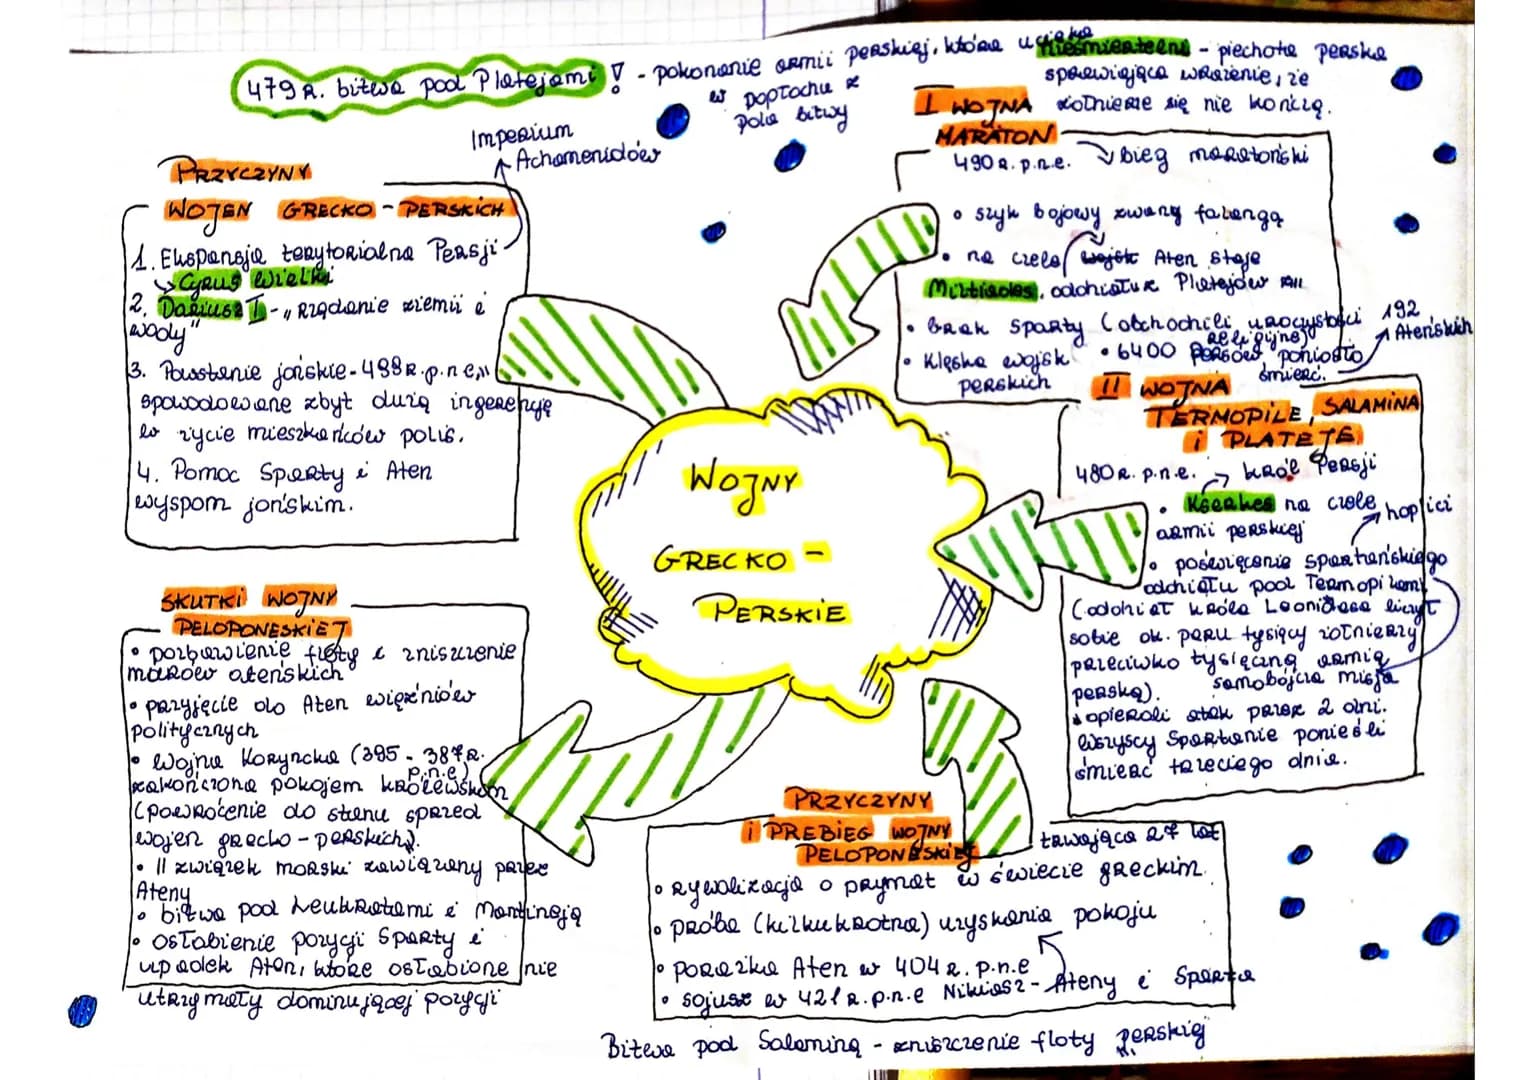 479 R. bitwa pod Platejami ! - pokonanie armii perskiej, która uciekła
w popłochu z
pola bitwy
Nieśmiertelni - piechota perska
sprawiająca wrażenie, że
żołnierze się nie kończą.
Imperium
Achamenidów
PRZYCZYNY
WOJEN GRECKO - PERSKICH
1. Ekspansja terytorialna Persji
Cyrus Wielki
2. Dariusz I - "Rządanie ziemii i
wody"
3. Powstanie jońskie - 499 R. p.n.e.
spowodowane zbyt dużą ingerencję
w życie mieszkańców polis.
4. Pomoc Sparty i Aten
wyspom jońskim.
I WOJNA
MARATON
490 R. p.n.e. bieg maratoński
• szyk bojowy zwany falangą
• na czele wojsk Aten staje
Miltiades, oddział z Platejów
• brak Sparty (obchodzili uroczystości
religijne)
• Klęska wojsk
perskich
• 6400 Persów poniosło
śmierć.
192
Ateńskich
II WOJNA
TERMOPILE, SALAMINA
i PLATEJE
480 R. p.n.e. król Persji
• Kserkes na czele
armii perskiej
hoplici
• poświęcenie spartańskiego
oddziału pod Termopilami
(oddział króla Leonidasa liczył
sobie ok. paru tysięcy żołnierzy
przeciwko tysięczną armią
perską).
samobójcza misja
• opierali atak przez 2 dni.
Wszyscy Spartanie ponieśli
śmierć trzeciego dnia.
WOJNY
GRECKO -
PERSKIE
SKUTKI WOJNY
PELOPONESKIEJ
• pozbawienie floty i zniszczenie
murów ateńskich
• przyjęcie do Aten więźniów
politycznych
• Wojna Koryncka (395 - 387 R.
p.n.e)
zakończona pokojem królewskom
(powrócenie do stanu sprzed
wojen grecko - perskich).
• II związek morski zawiązany przez
Ateny
• bitwa pod Leuktratami i Mantineją
• osłabienie pozycji Sparty i
upadek Aten, które osłabione nie
utrzymały dominującej pozycji
PRZYCZYNY
i PREBIEG WOJNY
PELOPONESKIEJ
trwająca 27 lat
• rywalizacja o prymat w świecie greckim.
• próba (kilkukrotna) uzyskania pokoju
• porażka Aten w 404 R. p.n.e
• sojusz w 421 R. p.n.e Nikiasz - Ateny i Sparta
Bitwa pod Salaminą - zniszczenie floty perskiej